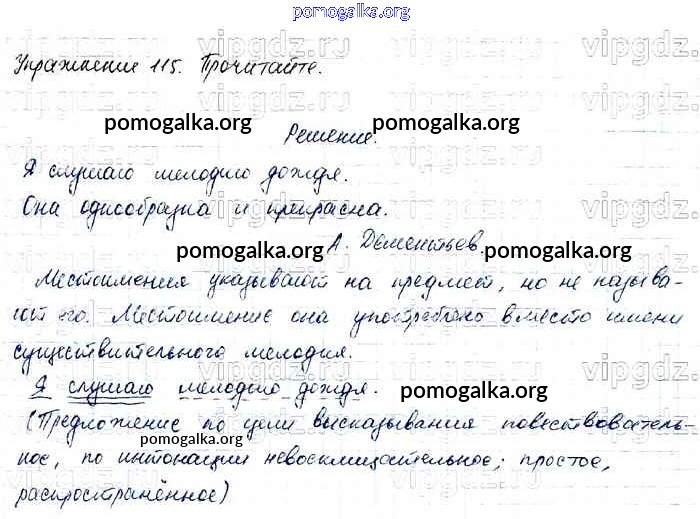 pomogalka.org
vipgdz.ru vipgdz.ru vipgdz.ru
Упражнение 115. Прочитайте.
pomogalka.org pomogalka.org
Решение.
Я слушаю мелодию дождя.
Она однообразна и прекрасна.
А. Дементьев.
pomogalka.org pomogalka.org
Местоимения указывают на предмет, но не называ-
ют его. Местоимение она употреблено вместо имени
существительного мелодия.
Я слушаю мелодию дождя.
pomogalka.org
(Предложение по цели высказывания повествователь-
pomogalka.org
ное, по интонации невосклицательное; простое,
pomogalka.org
распространённое)